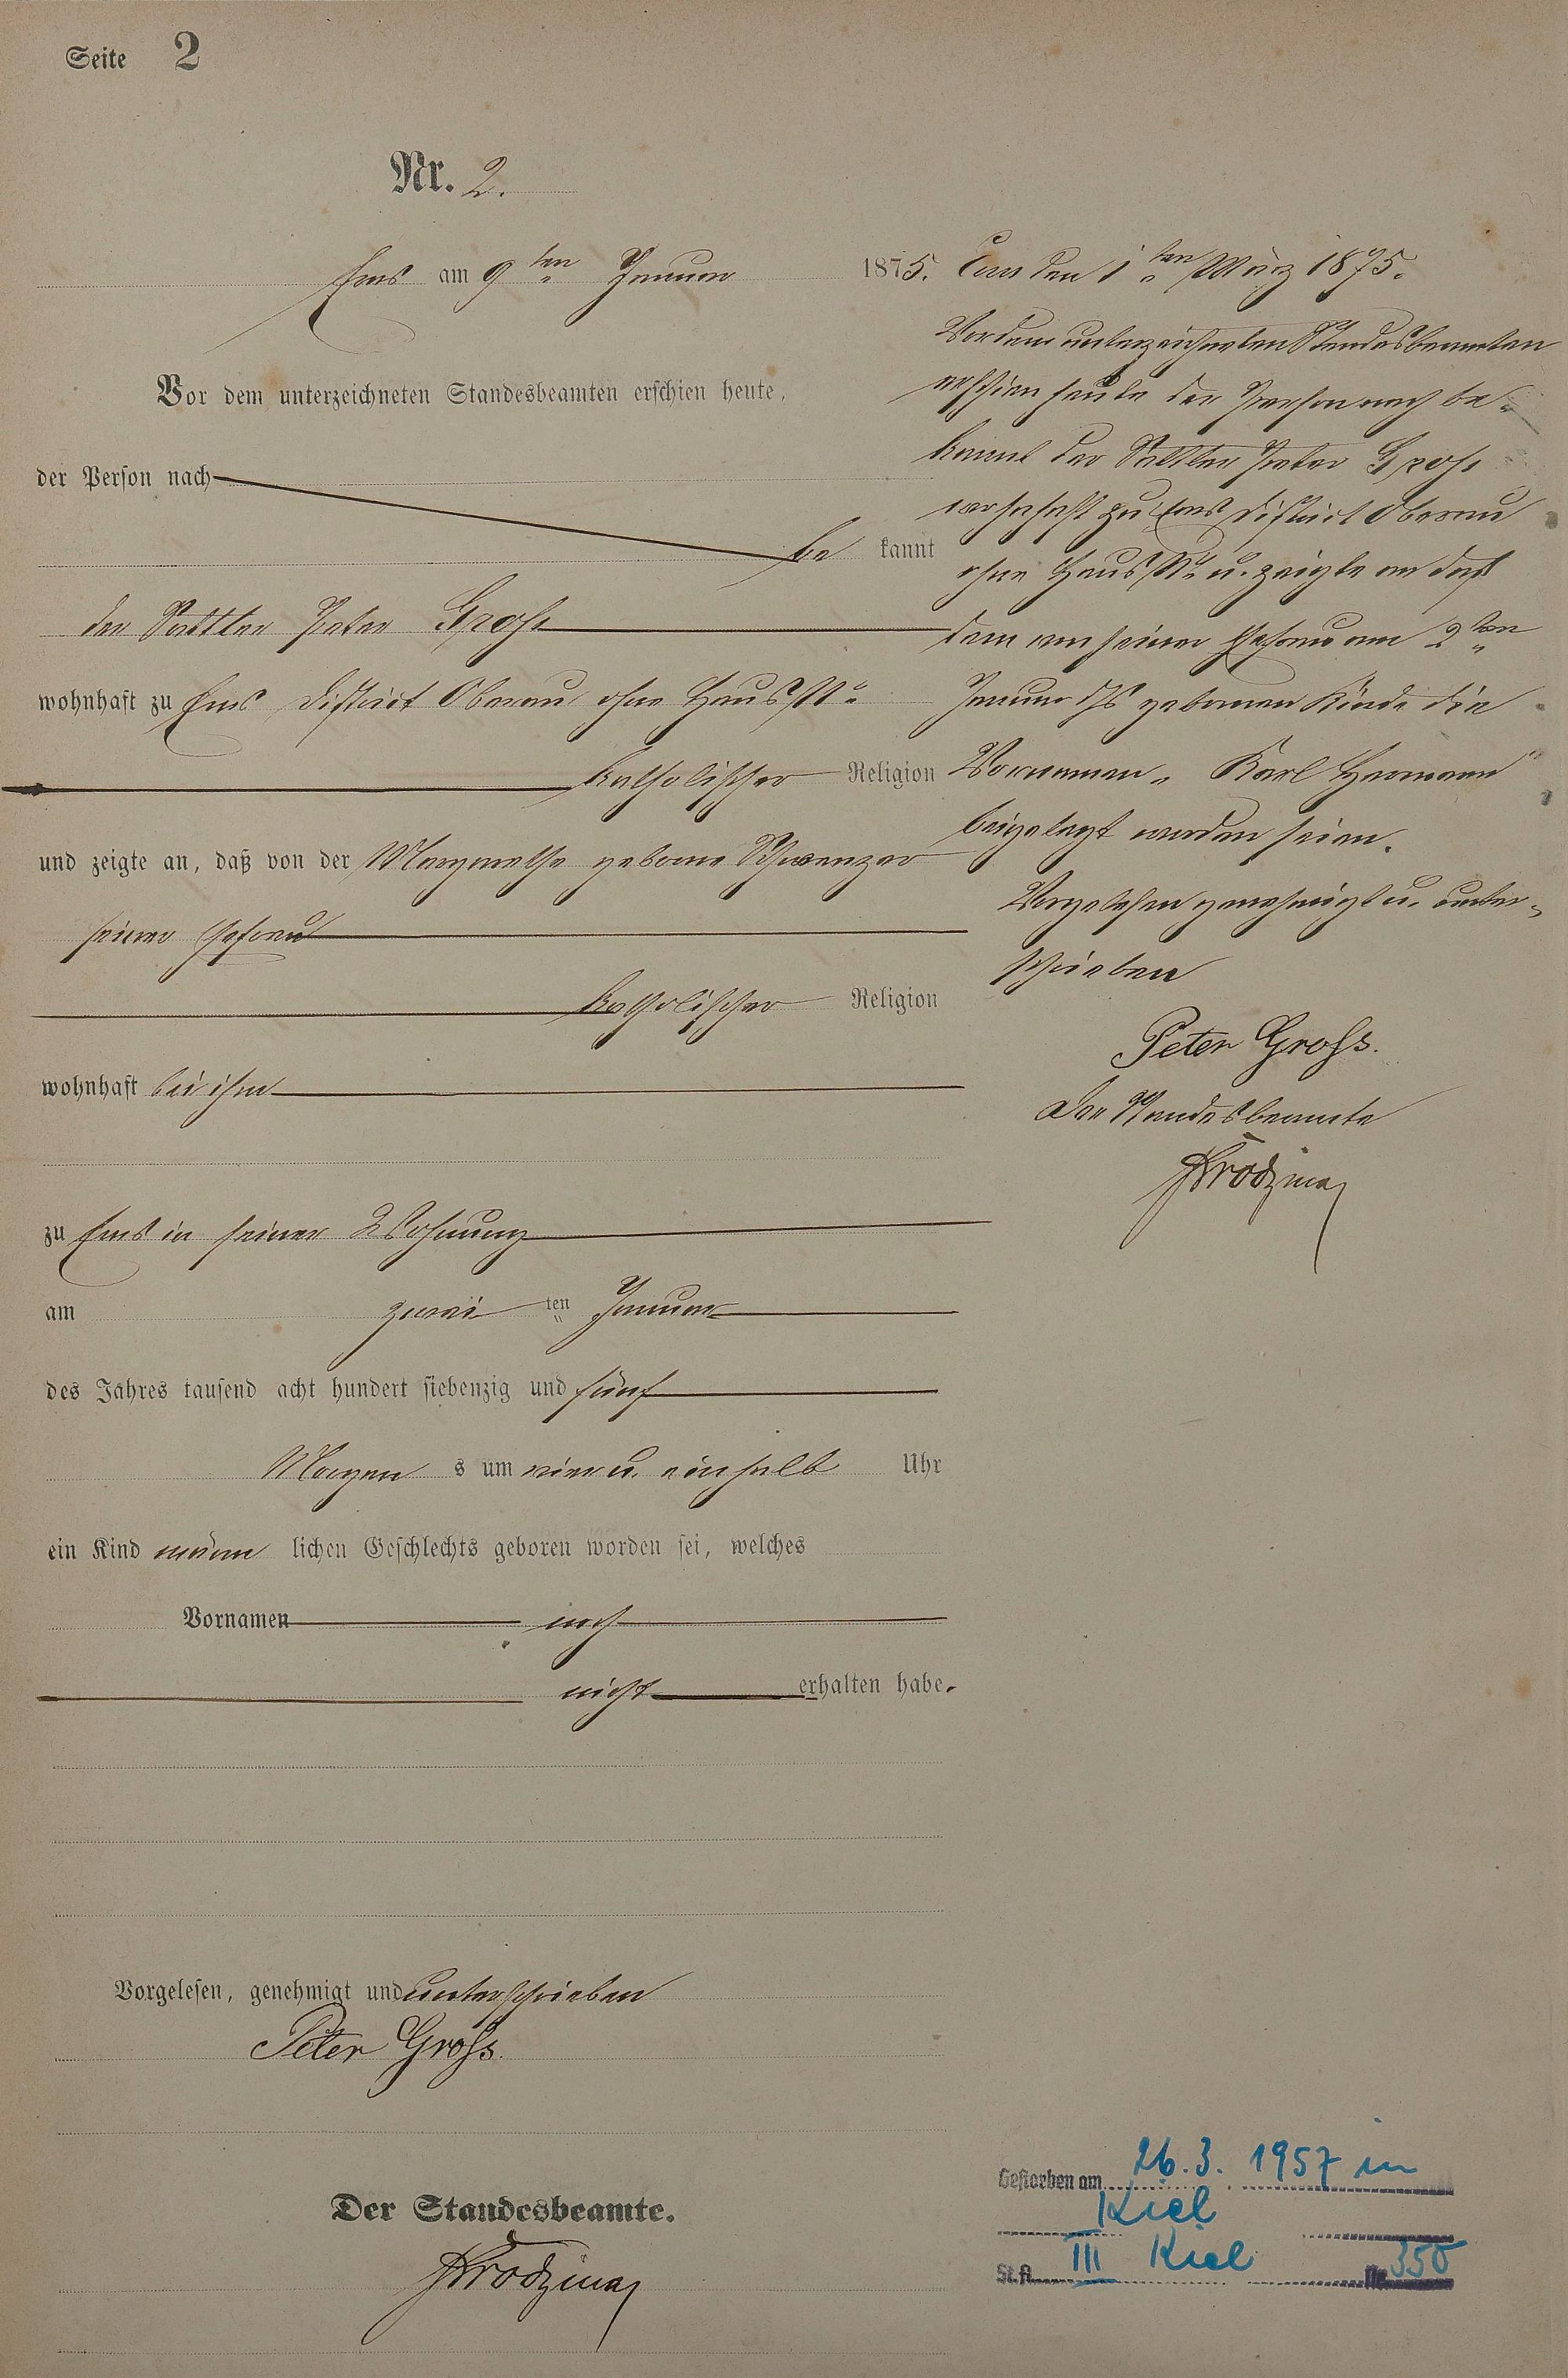 Seite 2
Nr. 2.
Ems am 9ten Januar 1875.
Vor dem unterzeichneten Standesbeamten erschien heute,
der Person nach
be kannt
der Sattler Peter Groß
wohnhaft zu Ems District Oberau ohne Haus Nr.
katholischer Religion
und zeigte an, daß von der Margarethe geborne Schwenzer
seiner Ehefrau
katholischer Religion
wohnhaft bei ihm
zu Ems in seiner Wohnung
am zwei ten Januar
des Jahres tausend acht hundert siebenzig und fünf
Morgen s um vier u. einhalb Uhr
ein Kind männ lichen Geschlechts geboren worden sei, welches
Vornamen noch
nicht erhalten habe.
Vorgelesen, genehmigt und unterschrieben
Peter Groß.
Der Standesbeamte.
Ems den 1ten März 1875.
Vor dem unterzeichneten Standesbeamten
erschien heute der Person nach be-
kannt der Sattler Peter Groß
wohnhaft zu Ems District Oberau
ohne Haus Nr. u. zeigte an daß
dem von seiner Ehefrau am 2ten
Januar d. Js gebornen Kinde die
Vornamen „Karl Hermann“
beigelegt worden seien.
Vorgelesen genehmigt u. unter-
schrieben
Peter Groß.
Der Standesbeamte
Gestorben am 26.3. 1957 in
Kiel
St.A. III Kiel Nr. 350